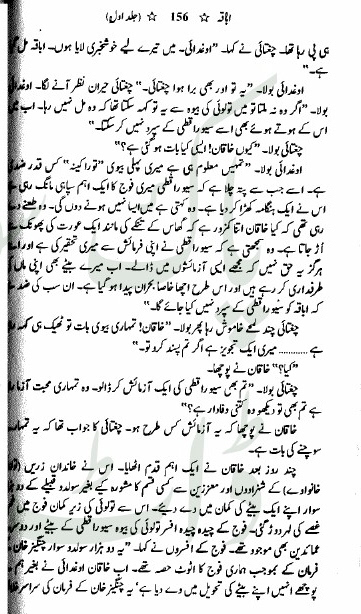 اباقہ ☆ 156 ☆ (جلد اول)
ہی پی رہا تھا۔ چغتائی نے کہا۔ "اوغدائی۔ میں تیرے لیے خوشخبری لایا ہوں۔ اباقہ مل گیا
ہے۔"
اوغدائی بولا۔ "یہ تو اور بھی برا ہوا چغتائی۔" چغتائی حیران نظر آنے لگا۔ اوغدائی
بولا۔ "اگر وہ نہ ملتا تو میں تولوئی کی بیوہ سے یہ تو کہہ سکتا تھا کہ وہ مل نہیں رہا۔ اب میں
اس کے ہوتے ہوئے بھی اسے سیورا قطی کے سپرد نہیں کر سکتا۔"
چغتائی بولا۔ "کیوں خاقان! ایسی کیا بات ہو گئی ہے؟"
اوغدائی بولا۔ "تمہیں معلوم ہی ہے میری پہلی بیوی "توراکینہ" کس قدر ضدی
ہے۔ اسے جب سے پتہ چلا ہے کہ سیورا قطی میری فوج کا ایک اہم سپاہی مانگ رہی ہے
اس نے ایک ہنگامہ کھڑا کر دیا ہے۔ وہ کہتی ہے میں ایسا نہیں ہونے دوں گی۔ وہ طعنے دے
رہی تھی کہ کیا خاقان اتنا کمزور ہے کہ گھاس کے تنکے کی مانند ایک عورت کی پھونک سے
اڑ جاتا ہے۔ وہ سمجھتی ہے کہ سیورا قطی نے اپنی فرمائش سے میری تحقیر کی ہے اور اسے
ہرگز یہ حق نہیں کہ مجھے ایسی آزمائشوں میں ڈالے۔ اب میرے بیٹے بھی اپنی ماں کی
طرفداری کر رہے ہیں اور اس طرح اچھا خاصا بحران پیدا ہو گیا ہے۔ ان سب کی ضد ہے
کہ اباقہ کو سیورا قطی کے سپرد نہیں کیا جائے گا۔"
چغتائی چند لمحے خاموش رہا پھر بولا۔ "خاقان! تمہاری بیوی بات تو ٹھیک ہی کہہ رہی
ہے ............ میری ایک تجویز ہے اگر تم پسند کرو تو۔"
"کیا؟" خاقان نے پوچھا۔
چغتائی بولا۔ "تم بھی سیورا قطی کی ایک آزمائش کر ڈالو۔ وہ تمہاری محبت آزما رہی
ہے تم بھی تو دیکھو وہ کتنی وفادار ہے؟"
خاقان نے پوچھا کہ یہ آزمائش کس طرح ہو۔ چغتائی کا جواب تھا کہ یہ تمہارے
سوچنے کی بات ہے۔
چند روز بعد خاقان نے ایک اہم قدم اٹھایا۔ اس نے خاندان زریں (
خانوادے) کے شہزادوں اور معززین سے کسی قسم کا مشورہ کیے بغیر سولدو قبیلے کے دو ہزار
سوار اپنے ایک بیٹے کی کمان میں دے دیئے۔ اس سے تولوئی کی زیر کمان فوج میں غم و
غصے کی لہر دوڑ گئی۔ فوج کے چیدہ چیدہ افسر تولوئی کی بیوہ سیورا قطی کے بیٹے اور دوسرے
عمائدین بھی موجود تھے۔ فوج کے افسروں نے کہا۔ "یہ دو ہزار سولدو سوار چنگیز خان کے
فرمان کے بموجب ہماری فوج کا اٹوٹ حصہ تھے۔ اب خاقان اوغدائی نے بغیر ہم سے
پوچھے انہیں اپنے بیٹے کی تحویل میں دے دیا ہے 'یہ چنگیز خان کے فرمان کی سراسر خلاف